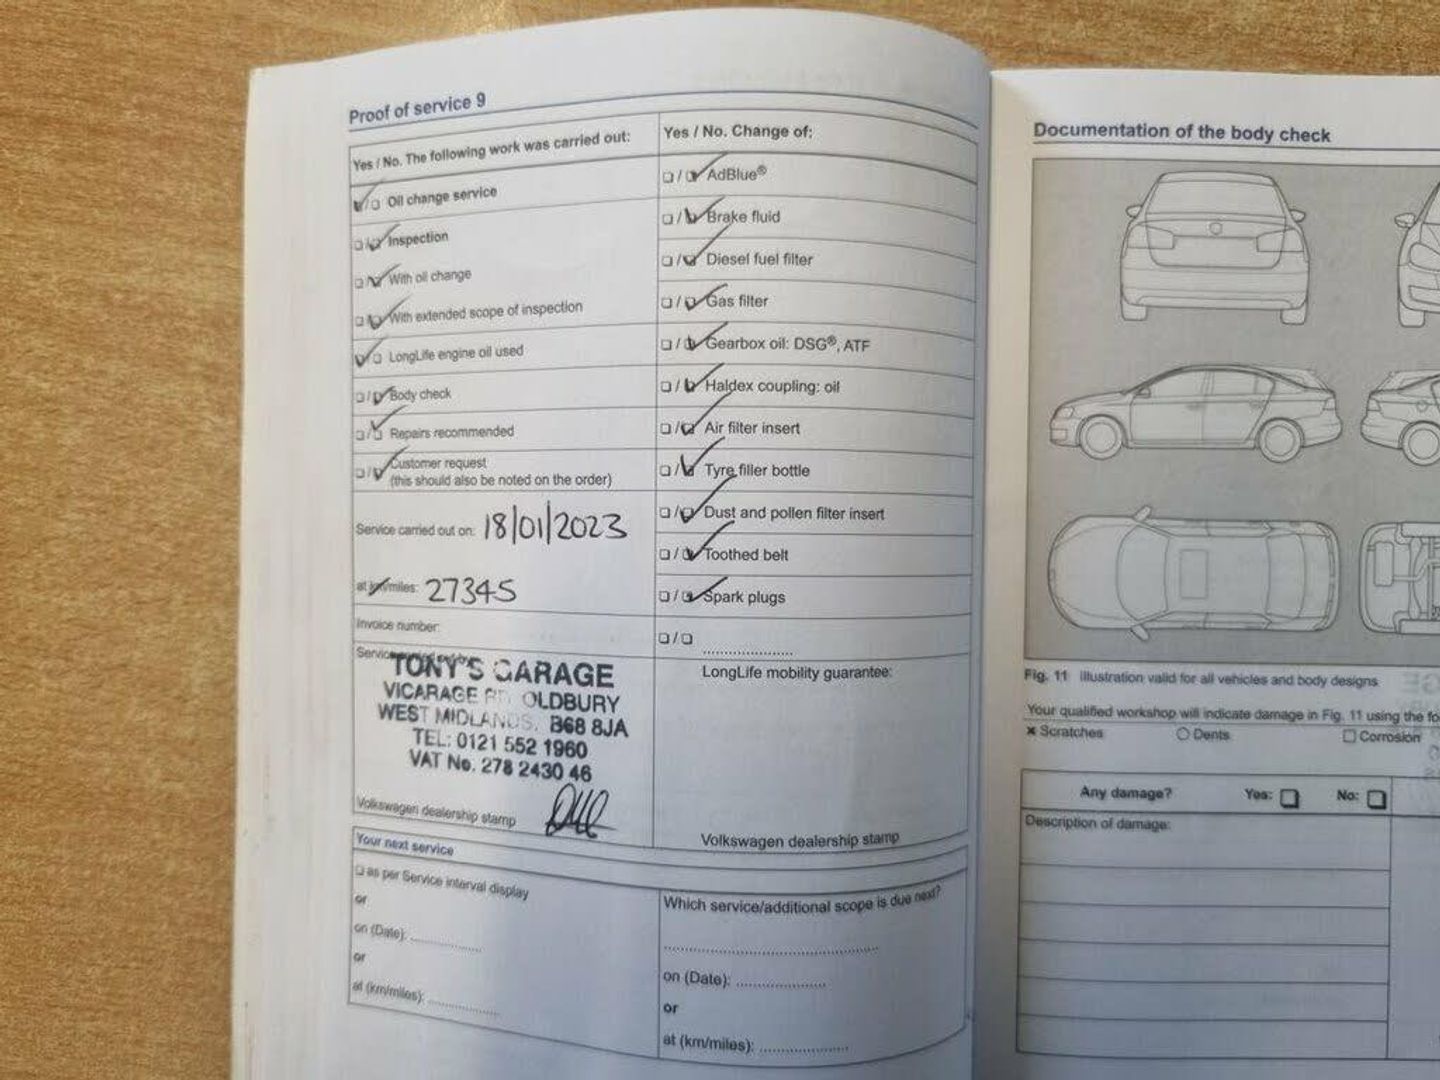 Proof of service 9
Yes / No. The following work was carried out:
Oil change service
Inspection
With oil change
With extended scope of inspection
LongLife engine oil used
Body check
Repairs recommended
Customer request
(this should also be noted on the order)
Service carried out on: 18/01/2023
at km/miles: 27345
Invoice number:
TONY'S GARAGE
VICARAGE RD, OLDBURY
WEST MIDLANDS. B68 8JA
TEL: 0121 552 1960
VAT No. 278 2430 46
Volkswagen dealership stamp
Yes / No. Change of:
AdBlue®
Brake fluid
Diesel fuel filter
Gas filter
Gearbox oil: DSG®, ATF
Haldex coupling: oil
Air filter insert
Tyre filler bottle
Dust and pollen filter insert
Toothed belt
Spark plugs
LongLife mobility guarantee:
Volkswagen dealership stamp
Your next service
as per Service interval display
or
on (Date):
or
at (km/miles):
Which service/additional scope is due next?
on (Date):
or
at (km/miles):
Documentation of the body check
Fig. 11 Illustration valid for all vehicles and body designs
Your qualified workshop will indicate damage in Fig. 11 using the fo
× Scratches
Dents
Corrosion
Any damage? Yes: No:
Description of damage: